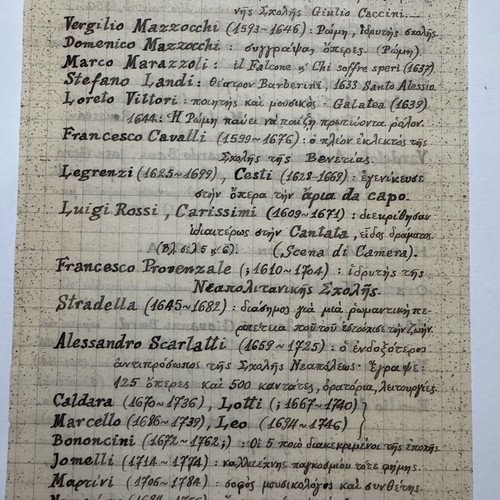 νῆς Σχολῆς Giulio Caccini.
Vergilio Mazzocchi (1593~1646) : Ρώμη, ἱδρυτὴς σχολῆς.
Domenico Mazzocchi : συγγραψα, ὄπερες. (Ρώμη)
Marco Marazzoli : il Falcone κ' Chi soffre speri (1637)
Stefano Landi : θέατρον Barberini, 1633 Santo Alessio.
Loreto Vittori : ποιητὴς καὶ μουσικός · Galatea (1639).
1644 : Ἡ Ρώμη παύει νὰ παίζῃ πρωτεύοντα ρόλον.
Francesco Cavalli (1599~1676) : ὁ πλέον ἐκλεκτὸς τῆς
Σχολῆς τῆς Βενετίας.
Legrenzi (1625~1699), Cesti (1628~1669) : ἐγενίκευσε
στὴν ὄπερα τὴν ἄρια da capo.
Luigi Rossi, Carissimi (1609~1671) : διεκρίθησαν
ἰδιαιτέρως στὴν Cantata, εἶδος δράματος.
(Βλ. σελ. 5 κ' 6). (Scena di Camera).
Francesco Provenzale (;1610~1704) : ἱδρυτὴς τῆς
Νεαπολιτανικῆς Σχολῆς.
Stradella (1645~1682) : διάσημος γιὰ μιὰ ρωμαντικὴ περιπέτεια
ποὺ τοῦ ἐστοίχισε τὴν ζωήν.
Alessandro Scarlatti (1659~1725) : ὁ ἐνδοξότερος
ἀντιπρόσωπος τῆς Σχολῆς Νεαπόλεως · Ἔγραψε :
125 ὄπερες καὶ 500 καντάτες, ὀρατόρια, λειτουργίες.
Caldara (1670~1736), Lotti (;1667~1740)
Marcello (1686~1739), Leo (1694~1746)
Bononcini (1672~1762;) : Οἱ 5 ποιὸ διακεκριμένοι τῆς ἐποχῆς.
Jomelli (1714~1774) : καλλιτέχνης παγκοσμίου τότε φήμης.
Martini (1706~1784) : σοφὸς μουσικολόγος καὶ συνθέτης